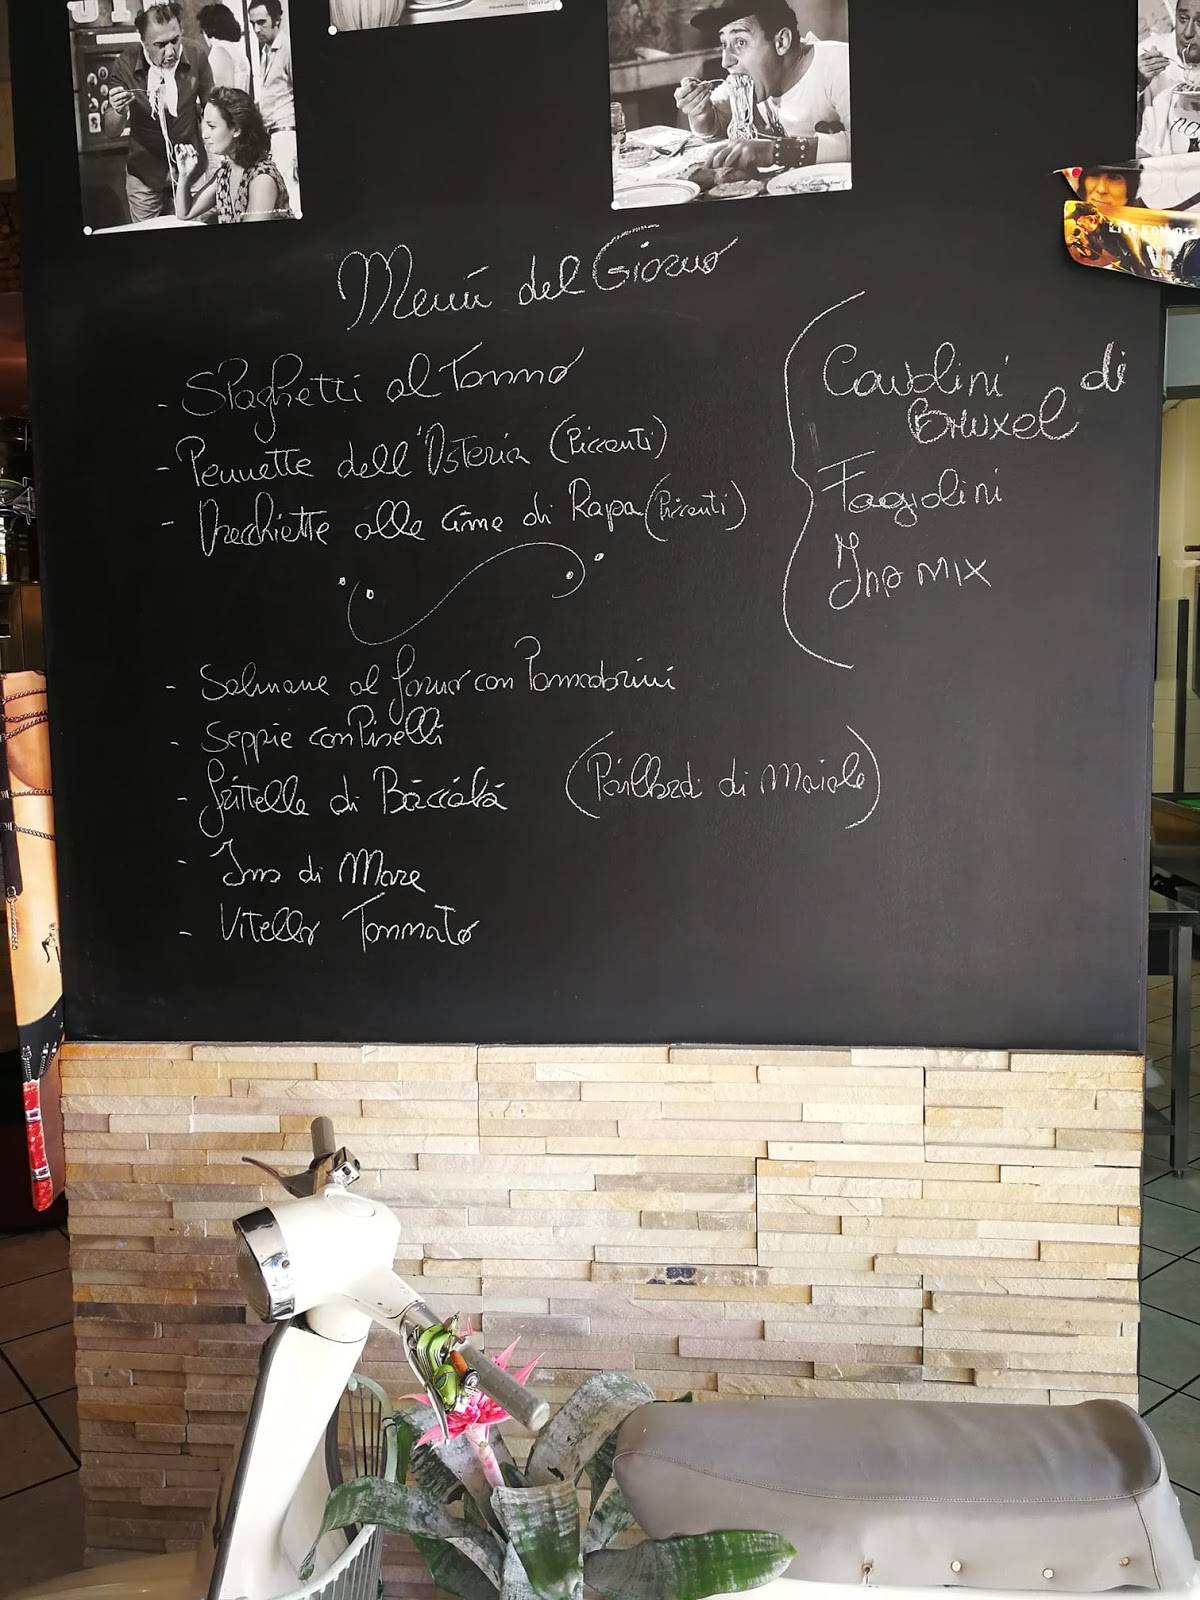 Menù del Giorno
- Spaghetti al Tonno
- Pennette dell'Osteria (Piccanti)
- Orecchiette alle Cime di Rapa (Piccanti)
- Salmone al forno con Pomodorini
- Seppie con Piselli
- frittelle di Baccalà (Paillard di Maiale)
- Ins di Mare
- Vitello Tonnato
Cavolini di
Bruxel
Fagiolini
Ins MIX